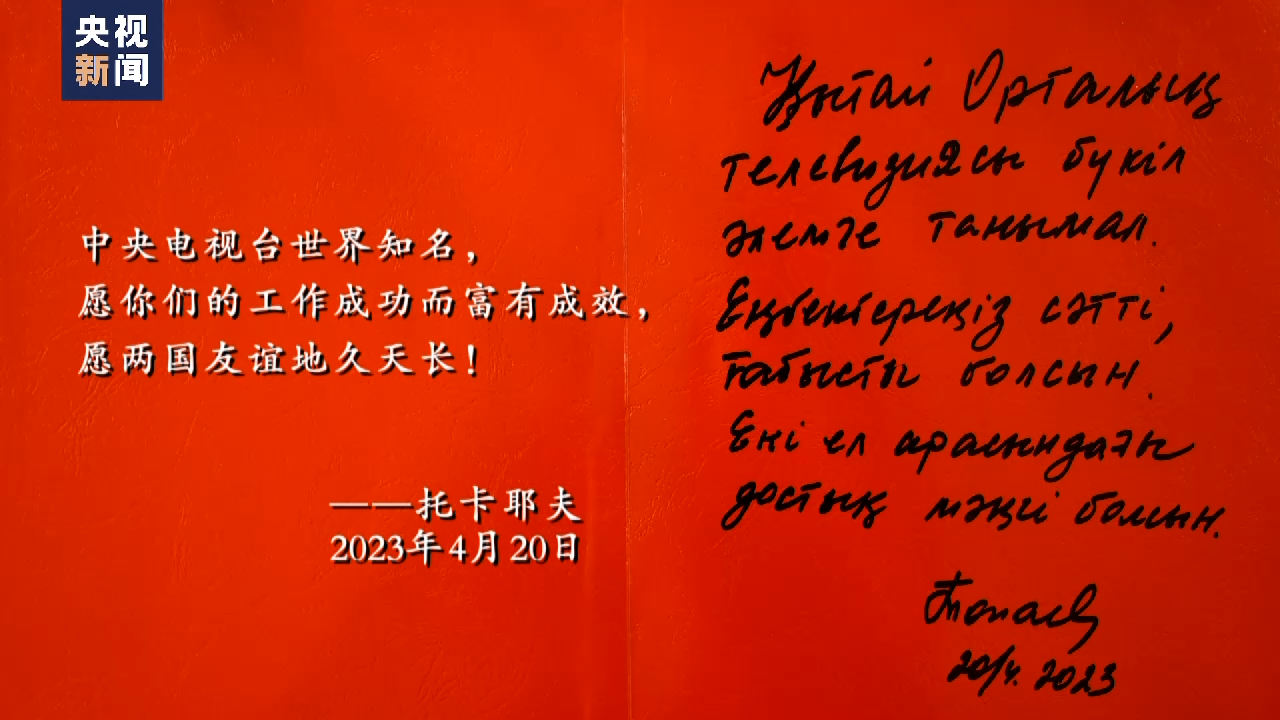 央视
新闻
中央电视台世界知名，
愿你们的工作成功而富有成效，
愿两国友谊地久天长！
——托卡耶夫
2023年4月20日
Қытай Орталық
телевизиясы бүкіл
әлемге танымал.
Еңбектеріңіз сәтті,
табысты болсын.
Екі ел арасындағы
достық мәңгі болсын.
Тоқаев
20/4. 2023